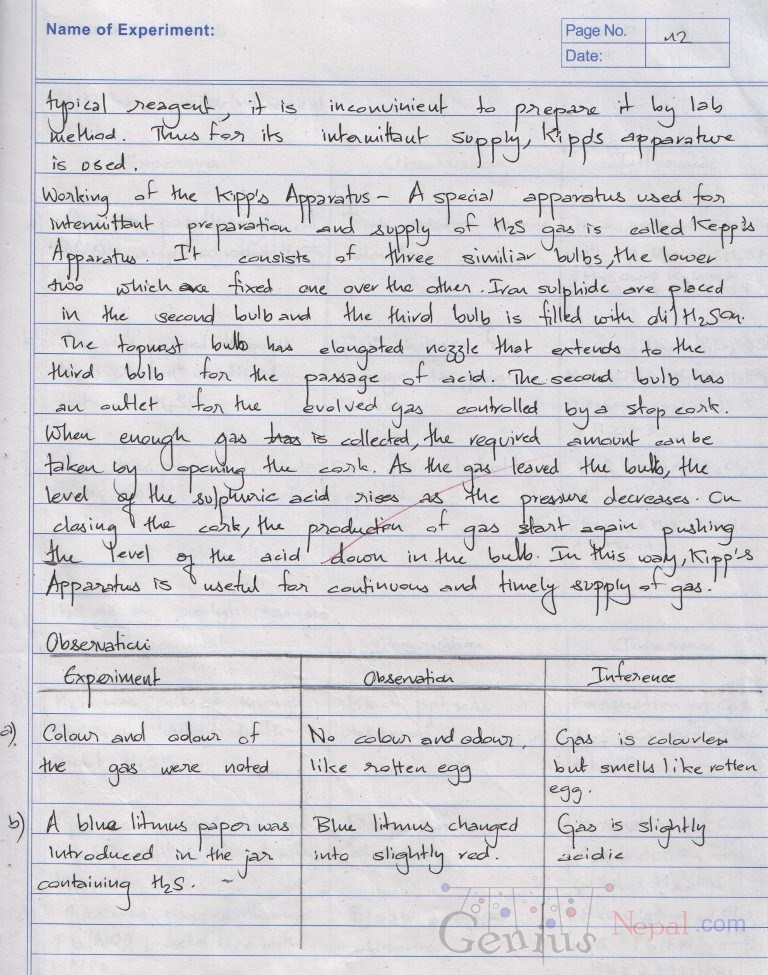 Name of Experiment:
Page No. 12
Date:
typical reagent, it is inconvinient to prepare it by lab
method. Thus for its intermittant supply, Kipp's apparature
is used.
Working of the Kipp's Apparatus - A special apparatus used for
intermittant preparation and supply of H2S gas is called Kepp's
Apparatus. It consists of three similiar bulbs, the lower
two which are fixed one over the other. Iron sulphide are placed
in the second bulb and the third bulb is filled with dil H2SO4.
The topmost bulb has elongated nozzle that extends to the
third bulb for the passage of acid. The second bulb has
an outlet for the evolved gas controlled by a stop cork.
When enough gas is collected, the required amount can be
taken by opening the cork. As the gas leaved the bulb, the
level of the sulphuric acid rises as the pressure decreases. On
closing the cork, the production of gas start again pushing
the level of the acid down in the bulb. In this way, Kipp's
Apparatus is useful for continuous and timely supply of gas.
Observation:
Experiment Observation Inference
a) Colour and odour of No colour and odour, Gas is colourless
the gas were noted like rotten egg but smells like rotten
egg.
b) A blue litmus paper was Blue litmus changed Gas is slightly
introduced in the jar into slightly red. acidic
containing H2S. -
Genius Nepal.com